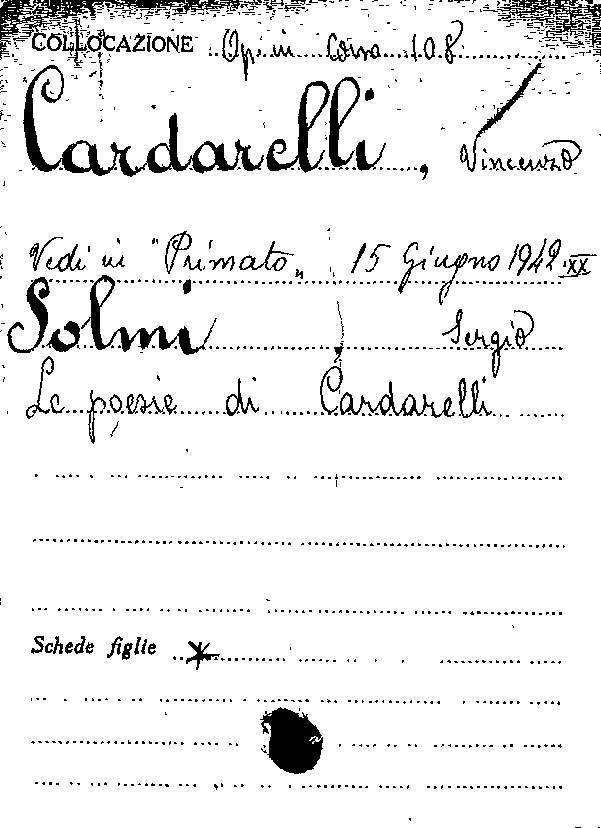 COLLOCAZIONE Op. in Corso 108
Cardarelli, Vincenzo
Vedi in "Primato" 15 Giugno 1942.XX
Solmi, Sergio
Le poesie di Cardarelli
Schede figlie